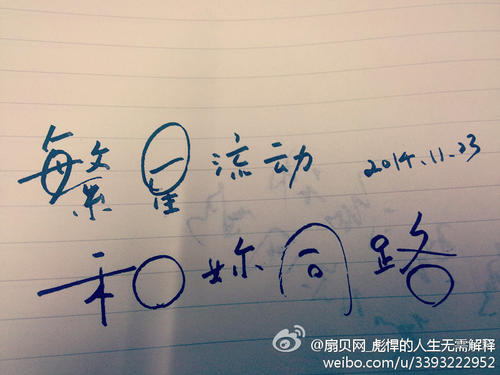 繁星流动 2014.11.23
和妳同路
@扇贝网_彪悍的人生无需解释
weibo.com/u/3393222952